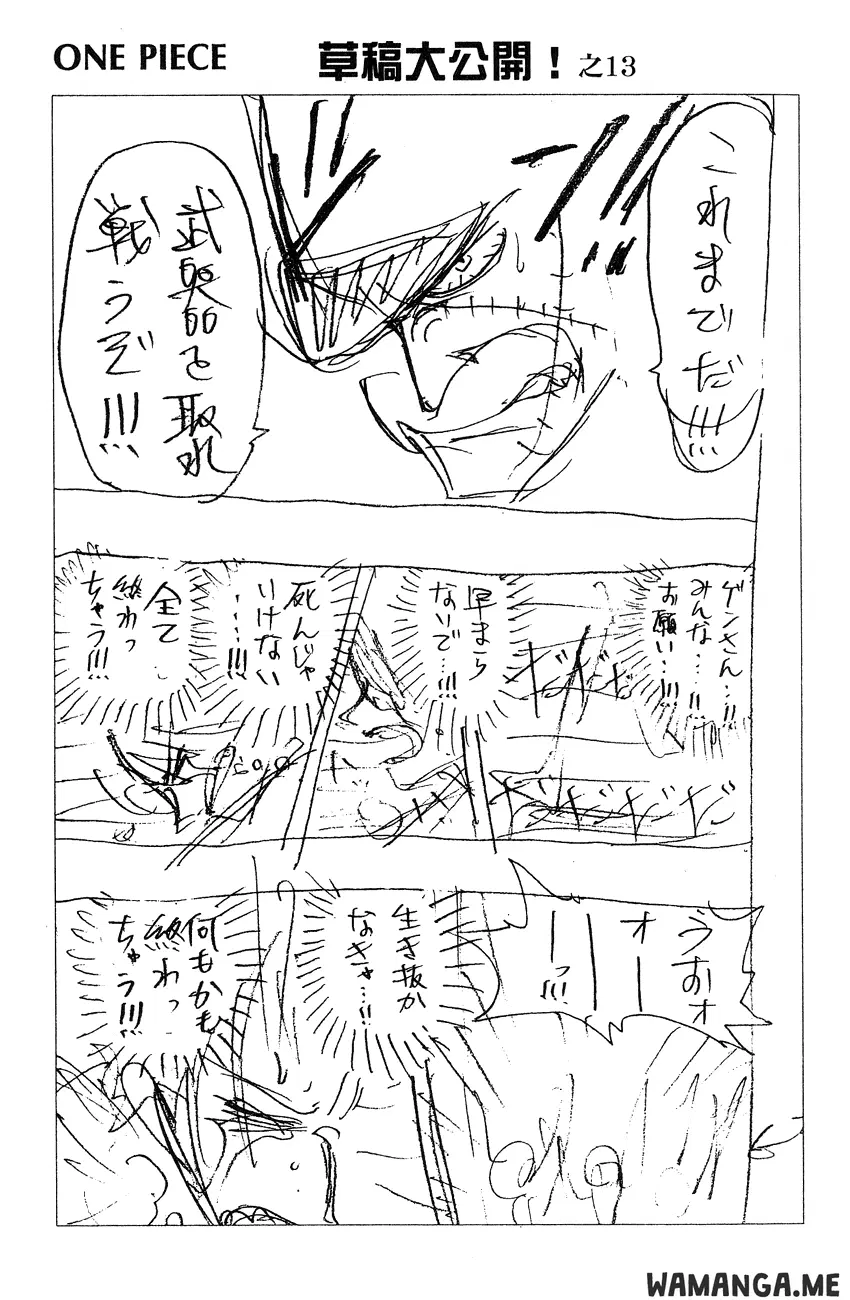 ONE PIECE
草稿大公開！之13
これまでだ!!!
武器を取れ
戦うぞ!!!
ゲンさん…!!
みんな…!!
お願い…!!!
早まら
ないで…!!!
死んじゃ
いけない
…!!!
全て
終わっ
ちゃう!!!
うおォ
オー
ーーっ!!!
生き抜か
なきゃ…!!
何もかも
終わっ
ちゃう!!!
WAMANGA.ME